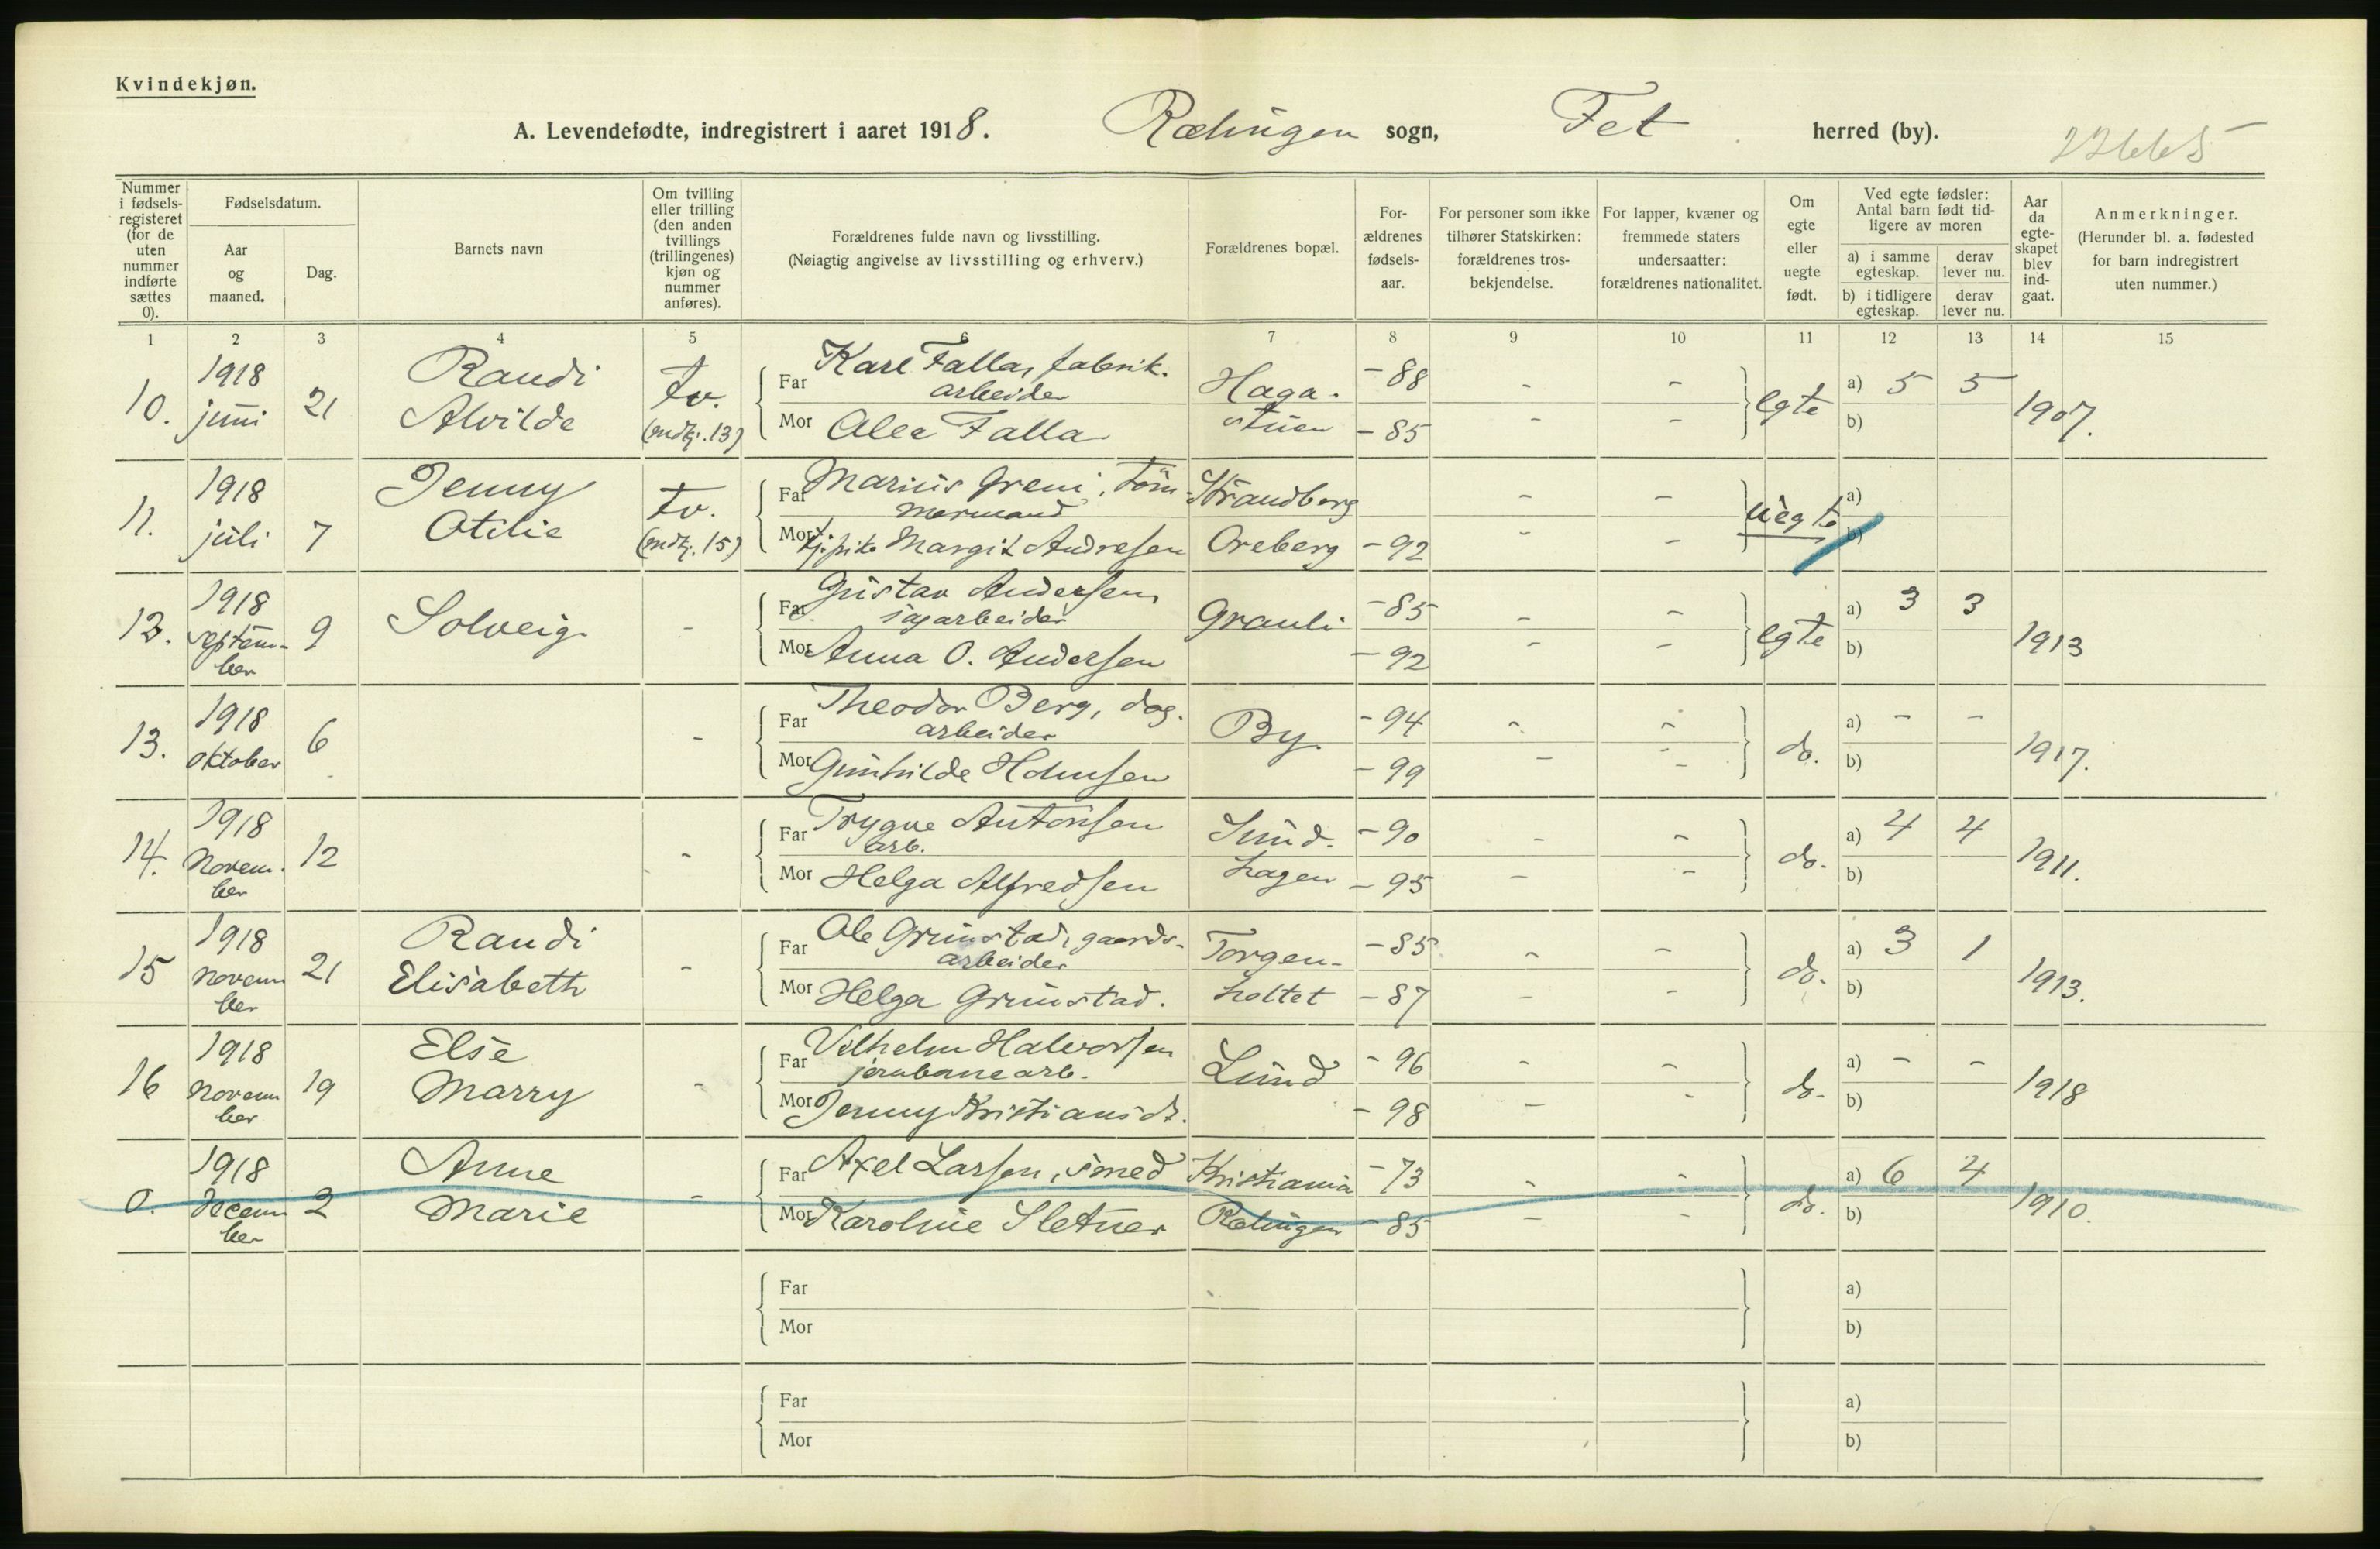 Kvindekjøn.
A. Levendefødte, indregistrert i aaret 1918. Rælingen sogn, Fet herred (by).
22665
Nummer i fødselsregisteret (for de uten nummer indførte sættes 0).
Fødselsdatum.
Aar og maaned.
Dag.
Barnets navn
Om tvilling eller trilling (den anden tvillings (trillingenes) kjøn og nummer anføres).
Forældrenes fulde navn og livsstilling.
(Nøiagtig angivelse av livsstilling og erhverv.)
Forældrenes bopæl.
For-ældrenes fødsels-aar.
For personer som ikke tilhører Statskirken: forældrenes tros-bekjendelse.
For lapper, kvæner og fremmede staters undersaatter: forældrenes nationalitet.
Om egte eller uegte født.
Ved egte fødsler: Antal barn født tid-ligere av moren
a) i samme egteskap.
derav lever nu.
b) i tidligere egteskap.
derav lever nu.
Aar da egte-skapet blev ind-gaat.
Anmerkninger.
(Herunder bl. a. fødested for barn indregistrert uten nummer.)
1 2 3 4 5 6 7 8 9 10 11 12 13 14 15
10. 1918 juni 21 Randi Alvilde tv. (mdkj. 13)
Far Karl Falla, fabrik-arbeider Haga- - 88 - - egte a) 5 5 1907.
Mor Alee Falla stuen - 85 - - b)
11. 1918 juli 7 Jenny Otilie tv. (mdkj. 15)
Far Marius Greni, tøm-mermand Strandberg - - uegte a)
Mor tj. pike Margit Andresen Oreberg - 92 - - b)
12. 1918 septem-ber 9 Solveig -
Far Gustav Andersen sagarbeider Grauli - 85 - - egte a) 3 3 1913
Mor Anna O. Andersen - 92 - - b)
13. 1918 oktober 6 -
Far Theodor Berg, dag-arbeider By - 94 - - do. a) - - 1917.
Mor Gunhilde Holmsen - 99 - - b)
14. 1918 Novem-ber 12 -
Far Trygve Antonsen arb. Sund- - 90 - - do. a) 4 4 1911.
Mor Helga Alfredsen hagen - 95 - - b)
15 1918 Novem ber 21 Randi Elisabeth -
Far Ole Grimstad, gaards-arbeider Torgen- - 85 - - do. a) 3 1 1913.
Mor Helga Grimstad. holtet - 87 - - b)
16 1918 Novem ber 19 Else Marry -
Far Vilhelm Halvorsen jernbanearb. Lund - 96 - - do. a) - - 1918
Mor Jenny Kristiansdt. - 98 - - b)
0. 1918 Decem ber 2 Anne Marie -
Far Axel Larsen, smed Kristiania - 73 - - do. a) 6 4 1910.
Mor Karoline Sletner Rælingen - 85 - - b)
Far a)
Mor b)
Far a)
Mor b)